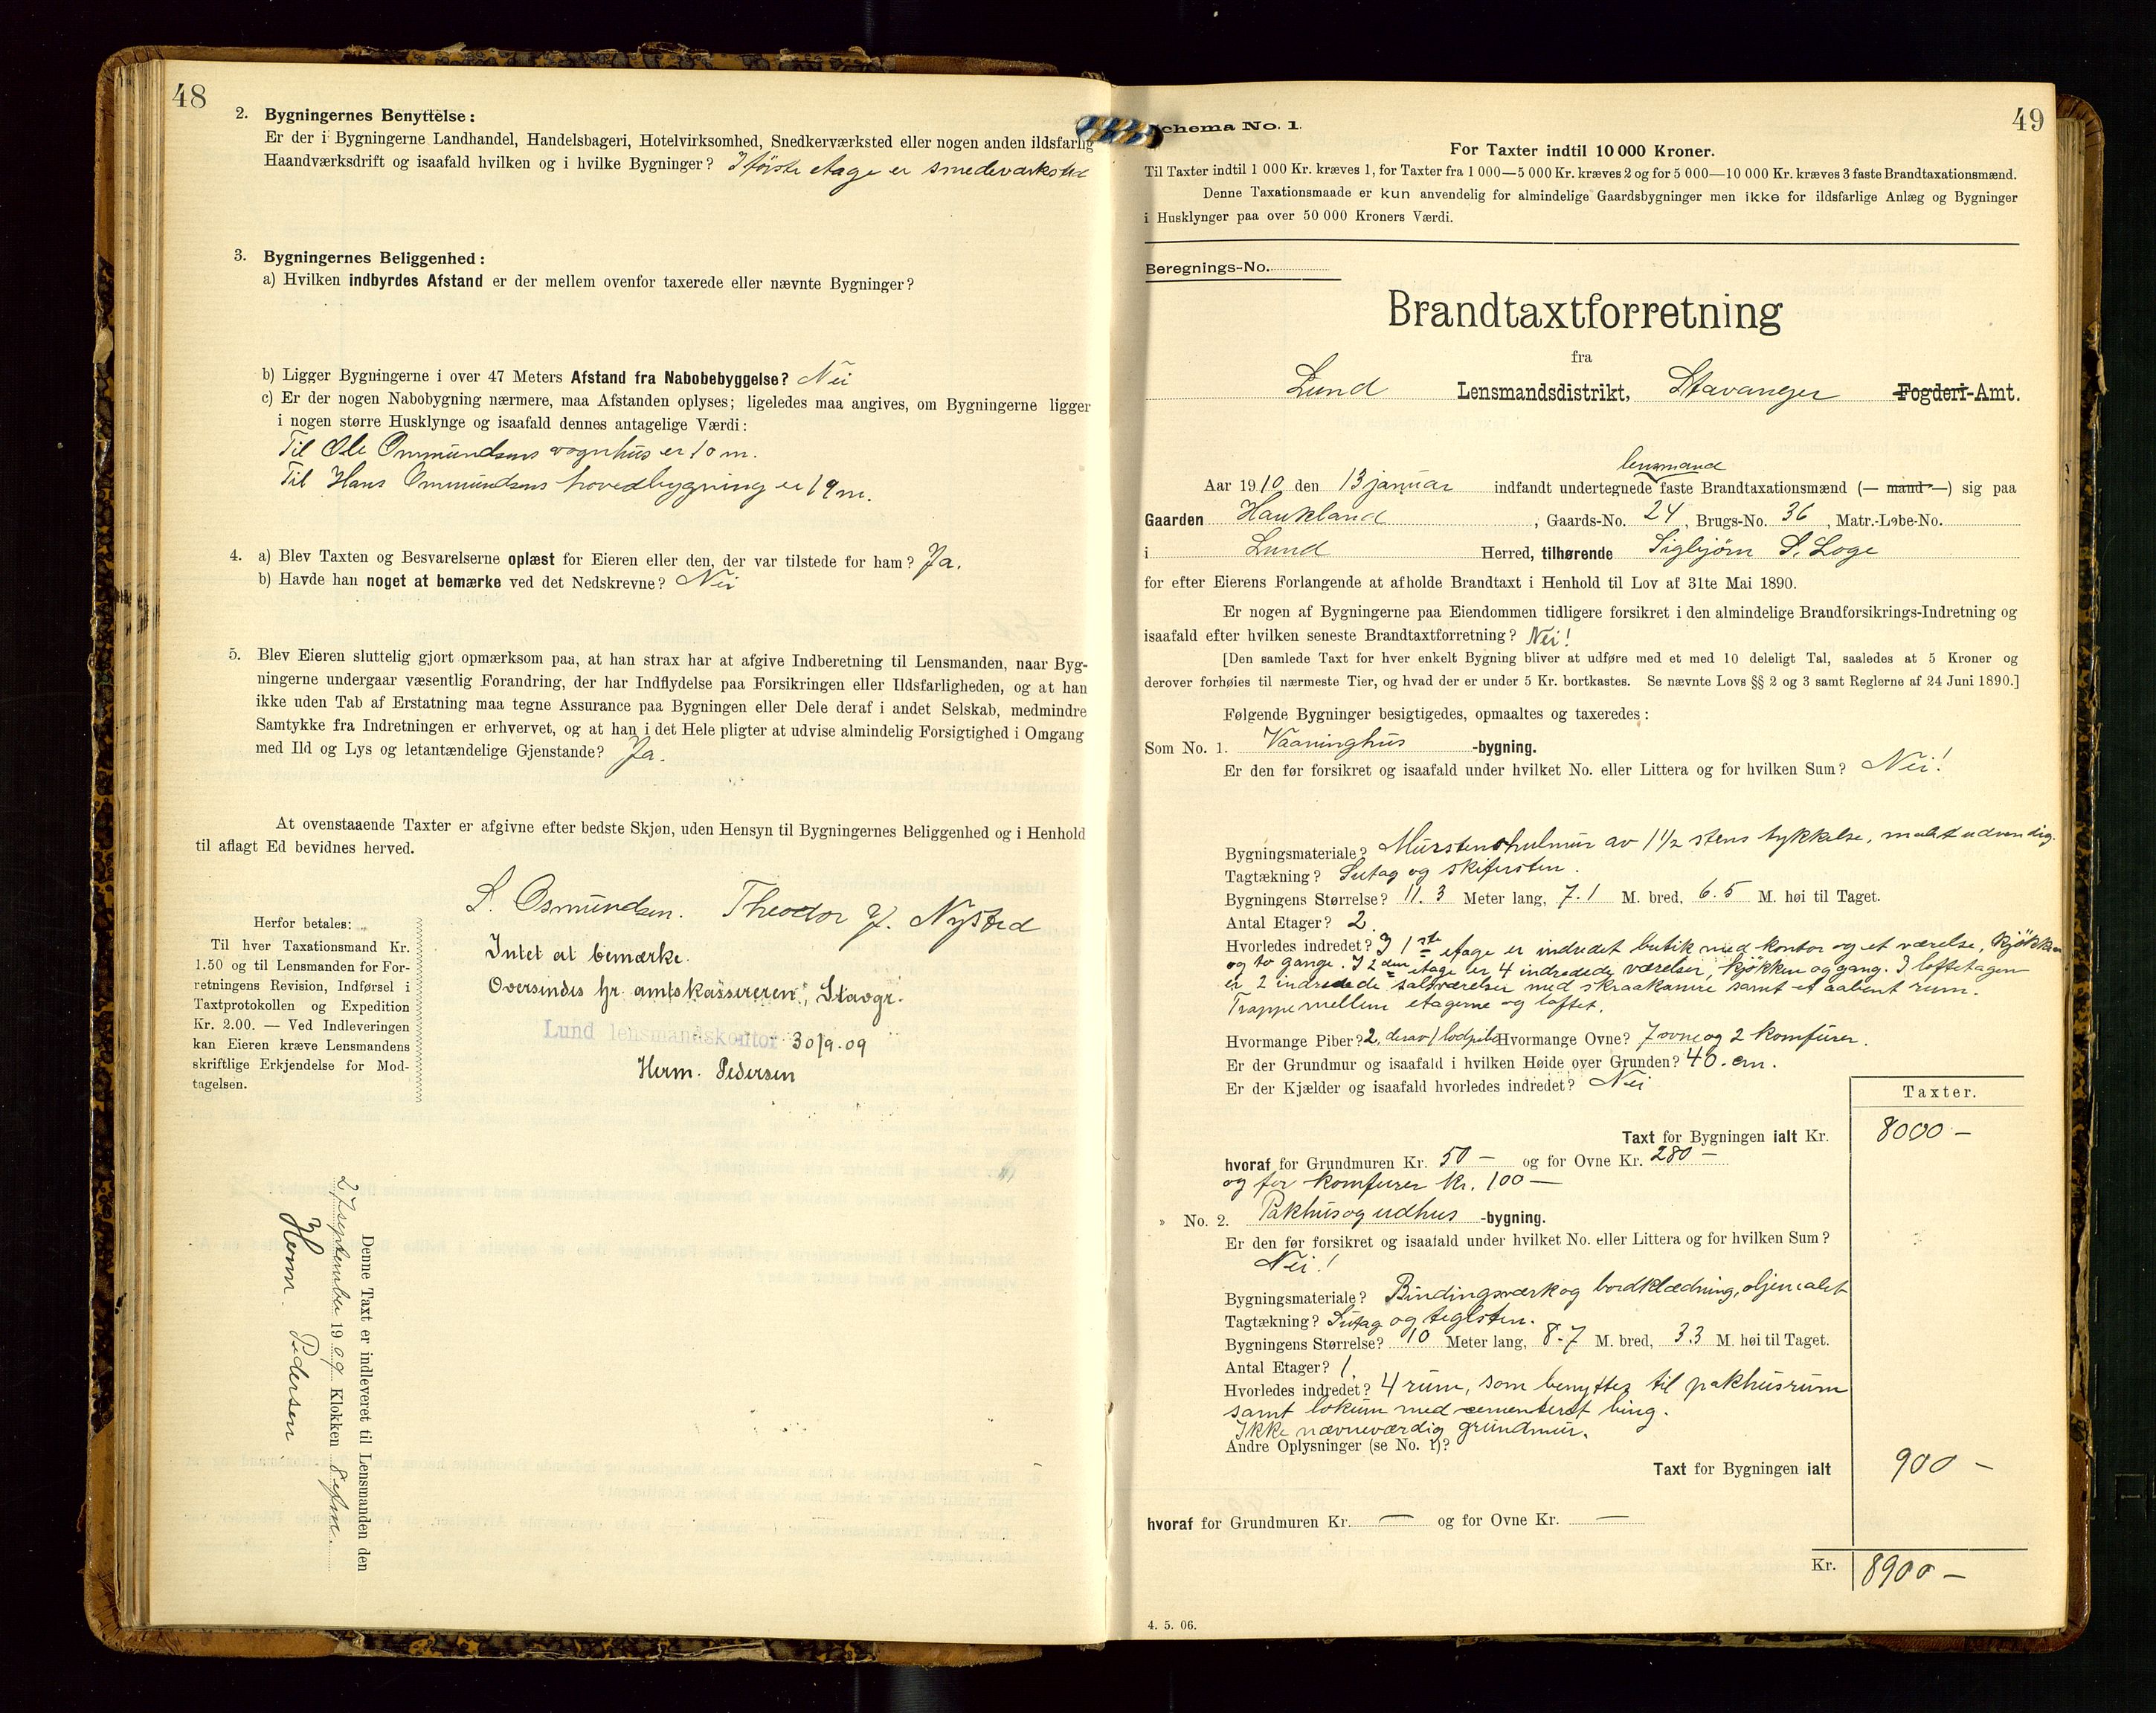 48
2. Bygningernes Benyttelse:
Er der i Bygningerne Landhandel, Handelsbageri, Hotelvirksomhed, Snedkerværksted eller nogen anden ildsfarlig
Haandværksdrift og isaafald hvilken og i hvilke Bygninger? I første etage er smedeværksted
3. Bygningernes Beliggenhed:
a) Hvilken indbyrdes Afstand er der mellem ovenfor taxerede eller nævnte Bygninger?
b) Ligger Bygningerne i over 47 Meters Afstand fra Nabobebyggelse? Nei
c) Er der nogen Nabobygning nærmere, maa Afstanden oplyses; ligeledes maa angives, om Bygningerne ligger
i nogen større Husklynge og isaafald dennes antagelige Værdi:
Til Ole Ommundsens vognhus er 10 m.
Til Hans Ommundsens hovedbygning er 19 m.
4. a) Blev Taxten og Besvarelserne oplæst for Eieren eller den, der var tilstede for ham? Ja.
b) Havde han noget at bemærke ved det Nedskrevne? Nei
5. Blev Eieren sluttelig gjort opmærksom paa, at han strax har at afgive Indberetning til Lensmanden, naar Byg-
ningerne undergaar væsentlig Forandring, der har Indflydelse paa Forsikringen eller Ildsfarligheden, og at han
ikke uden Tab af Erstatning maa tegne Assurance paa Bygningen eller Dele deraf i andet Selskab, medmindre
Samtykke fra Indretningen er erhvervet, og at han i det Hele pligter at udvise almindelig Forsigtighed i Omgang
med Ild og Lys og letantændelige Gjenstande? Ja.
At ovenstaaende Taxter er afgivne efter bedste Skjøn, uden Hensyn til Bygningernes Beliggenhed og i Henhold
til aflagt Ed bevidnes herved.
S. Osmundsen. Theodor J. Nysted
Herfor betales:
Til hver Taxationsmand Kr.
1.50 og til Lensmanden for For-
retningens Revision, Indførsel i
Taxtprotokollen og Expedition
Kr. 2.00. — Ved Indleveringen
kan Eieren kræve Lensmandens
skriftlige Erkjendelse for Mod-
tagelsen.
Intet at bemærke.
Oversendes hr. amtskassereren, Stavgr.
Lund lensmandskontor 30/9-09
Herm. Pedersen
Denne Taxt er indleveret til Lensmanden den
27 september 1909 Klokken 8 efm.
Herm. Pedersen
49
Schema No. 1.
For Taxter indtil 10 000 Kroner.
Til Taxter indtil 1 000 Kr. kræves 1, for Taxter fra 1 000—5 000 Kr. kræves 2 og for 5 000—10 000 Kr. kræves 3 faste Brandtaxationsmænd.
Denne Taxationsmaade er kun anvendelig for almindelige Gaardsbygninger men ikke for ildsfarlige Anlæg og Bygninger
i Husklynger paa over 50 000 Kroners Værdi.
Beregnings-No.
Brandtaxtforretning
fra
Lund Lensmandsdistrikt, Stavanger Fogderi-Amt.
lensmand
Aar 1910 den 13 januar indfandt undertegnede faste Brandtaxationsmænd (— mand —) sig paa
Gaarden Haukland, Gaards-No. 24, Brugs-No. 36, Matr.-Løbe-No.
i Lund Herred, tilhørende Sigbjørn S. Loge
for efter Eierens Forlangende at afholde Brandtaxt i Henhold til Lov af 31te Mai 1890.
Er nogen af Bygningerne paa Eiendommen tidligere forsikret i den almindelige Brandforsikrings-Indretning og
isaafald efter hvilken seneste Brandtaxtforretning? Nei!
[Den samlede Taxt for hver enkelt Bygning bliver at udføre med et med 10 deleligt Tal, saaledes at 5 Kroner og
derover forhøies til nærmeste Tier, og hvad der er under 5 Kr. bortkastes. Se nævnte Lovs §§ 2 og 3 samt Reglerne af 24 Juni 1890.]
Følgende Bygninger besigtigedes, opmaaltes og taxeredes:
Som No. 1. Vaaninghus -bygning.
Er den før forsikret og isaafald under hvilket No. eller Littera og for hvilken Sum? Nei!
Bygningsmateriale? Murstenshulmur av 1 1/2 stens tykkelse, malet udvendig.
Tagtækning? Sutag og skifersten.
Bygningens Størrelse? 11.3 Meter lang, 7.1 M. bred, 6.5 M. høi til Taget.
Antal Etager? 2
Hvorledes indredet? I 1ste etage er indredet butik med kontor og et værelse, kjøkken
og to gange. I 2den etage er 4 indredede værelser, kjøkken og gang. I loftetagen
er 2 indredede salsværelser med skraakamre samt et aabent rum.
Trappe mellem etagerne og loftet.
Hvormange Piber? 2, derav 1 lodpibe Hvormange Ovne? 7 ovne og 2 komfurer.
Er der Grundmur og isaafald i hvilken Høide over Grunden? 40. cm.
Er der Kjælder og isaafald hvorledes indredet? Nei
Taxter.
Taxt for Bygningen ialt Kr. 8000 —
hvoraf for Grundmuren Kr. 50 — og for Ovne Kr. 280 —
og for komfurer kr. 100 —
» No. 2. Pakhus og udhus -bygning.
Er den før forsikret og isaafald under hvilket No. eller Littera og for hvilken Sum?
Nei!
Bygningsmateriale? Bindingsværk og bordklædning, oljemalet
Tagtækning? Sutag og teglsten.
Bygningens Størrelse? 10 Meter lang, 8-7 M. bred, 3.3 M. høi til Taget.
Antal Etager? 1.
Hvorledes indredet? 4 rum, som benyttes til pakhusrum
samt lokum med cementeret bing.
Ikke nævneværdig grundmur.
Andre Oplysninger (se No. 1)?
Taxt for Bygningen ialt 900 —
hvoraf for Grundmuren Kr. — og for Ovne Kr. —
Kr. 8900 —
4. 5. 06.